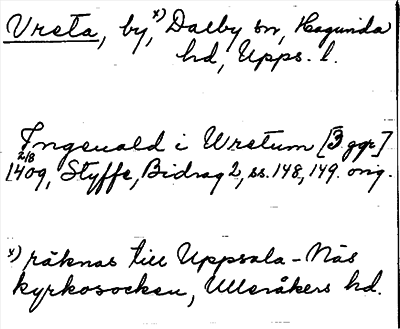 Vreta, by,x) Dalby sn, Hagunda
hd, Upps. l.
Ingeuald i Wretum [3 ggr]
2/8 1409, Styffe, Bidrag 2, ss. 148, 149. orig.
x) räknas till Uppsala-Näs
kyrkosocken, Ulleråkers hd.